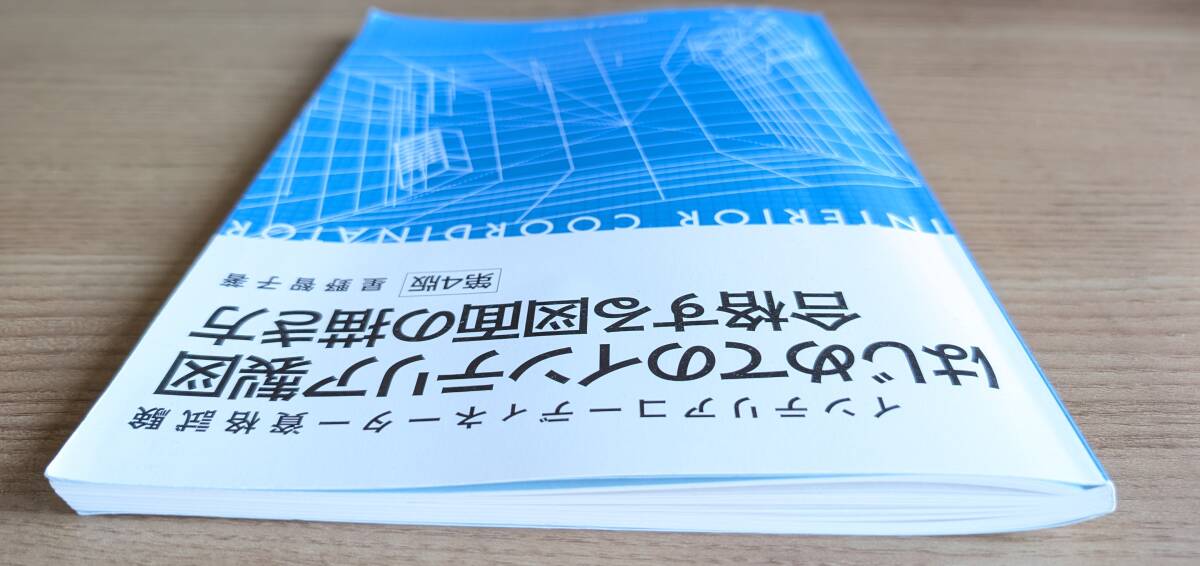 インテリアコーディネーター資格試験
はじめてのインテリア製図
合格する図面の描き方
第4版 星野智子著
INTERIOR COORDINATOR